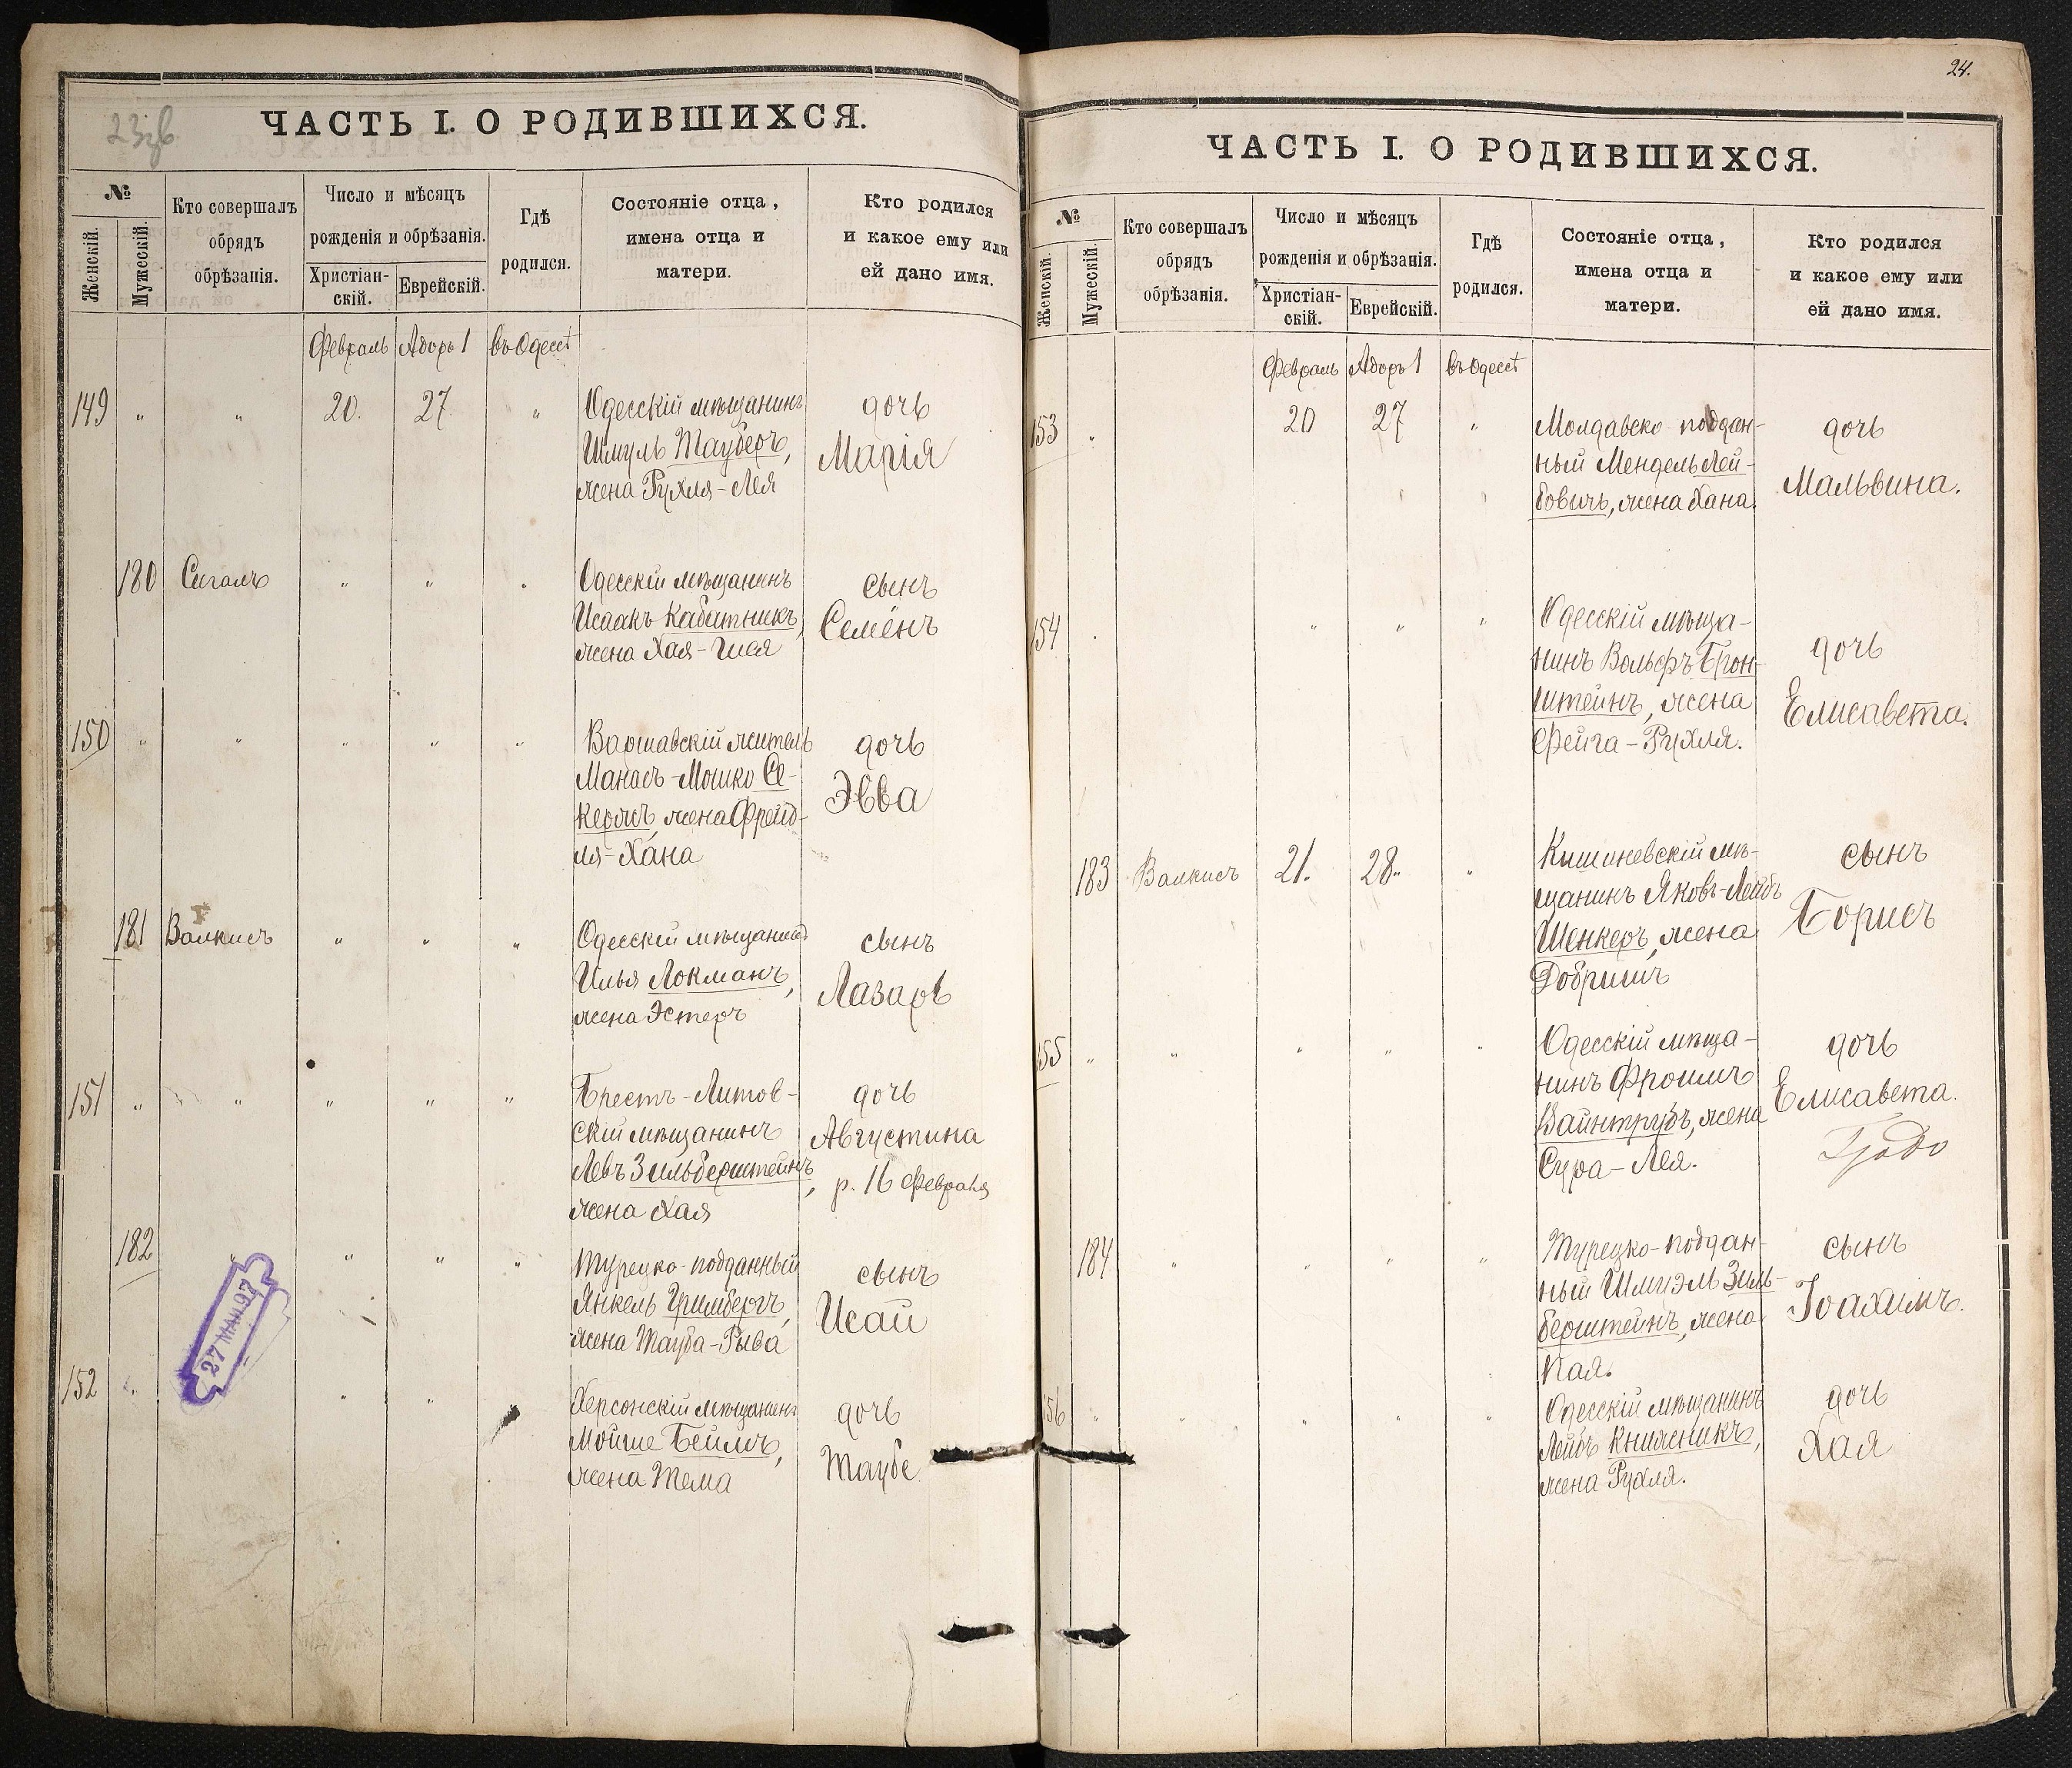 23об
ЧАСТЬ I. О РОДИВШИХСЯ.
№
Женскій.
Мужескій.
Кто совершалъ
обрядъ
обрѣзанія.
Число и мѣсяцъ
рожденія и обрѣзанія.
Христіан-
скій.
Еврейскій.
Гдѣ
родился.
Состояніе отца,
имена отца и
матери.
Кто родился
и какое ему или
ей дано имя.
Февраль Адоръ 1 въ Одессѣ
149 " " 20. 27. " Одесскій мѣщанинъ дочь
Шмуль Тауберъ, Марія
жена Рухля-Лея
180 Сигалъ " " " Одесскій мѣщанинъ сынъ
Исаакъ Кабатникъ, Семёнъ
жена Хая-Шея
150 " " " " " Варшавскій житель дочь
Манасъ-Мошко Се- Эвва
кержъ, жена Фрейд-
ля-Хана
181 Валкисъ " " " Одесскій мѣщанинъ сынъ
Илья Локманъ, Лазарь
жена Эстеръ
151 " " " " " Брестъ-Литов- дочь
скій мѣщанинъ Августина
Левъ Зильберштейнъ, р. 16 февраля
жена Хая
182 " " " " Турецко-подданный сынъ
Янкель Гринбергъ, Исай
жена Тауба-Рыва
27 МАЯ 97
152 " " " Херсонскій мѣщанинъ дочь
Мойше Беймъ, Таубе.
жена Тема
24.
ЧАСТЬ I. О РОДИВШИХСЯ.
№
Женскій.
Мужескій.
Кто совершалъ
обрядъ
обрѣзанія.
Число и мѣсяцъ
рожденія и обрѣзанія.
Христіан-
скій.
Еврейскій.
Гдѣ
родился.
Состояніе отца,
имена отца и
матери.
Кто родился
и какое ему или
ей дано имя.
Февраль Адоръ 1 въ Одессѣ
153 " 20 27 " Молдавско-поддан- дочь
ный Мендель Лей- Мальвина.
бовичъ, жена Хана.
154 " " " " Одесскій мѣща- дочь
нинъ Вольфъ Брон- Елисавета.
штейнъ, жена
Фейга-Рухля.
183 Валкисъ 21. 28. " Кишиневскій мѣ- сынъ
щанинъ Яковъ-Лейбъ Борисъ
Шенкеръ, жена
Добришъ
155 " " " " " Одесскій мѣща- дочь
нинъ Фроимъ Елисавета.
Вайнтрубъ, жена
Сура-Лея.
184 " " " " Турецко-поддан- сынъ
ный Шмуэль Зиль- Іоахимъ.
берштейнъ, жена
Пая.
156 " " " " " Одесскій мѣщанинъ дочь
Лейбъ Княжникъ, Хая
жена Рухля.